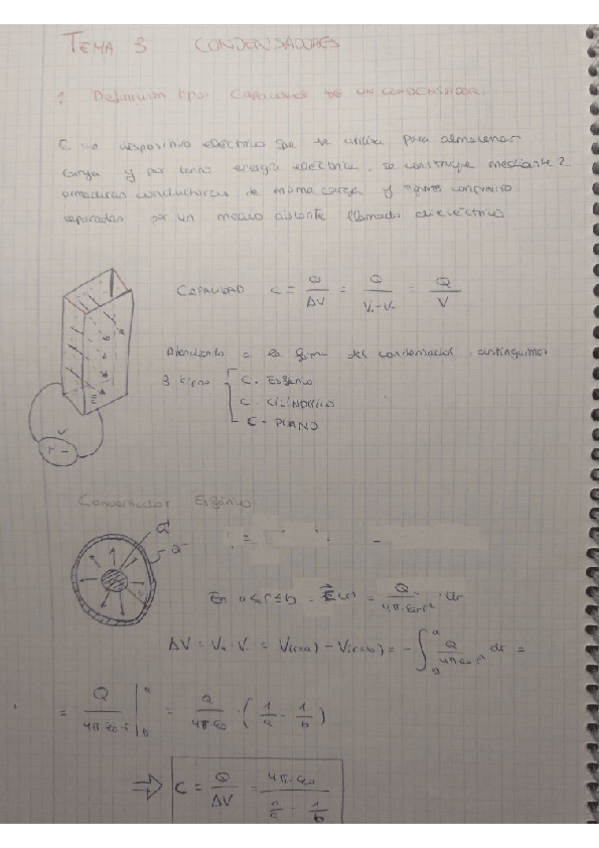 TEMA 3 CONDENSADORES
1 Definicion tipos. CAPACIDAD DE UN CONDENSADOR.
E un dispositivo electrico que se utiliza para almacenar
carga y por tanto energia electrica, se construye mediante 2
armaduras conductoras de misma carga y signo contrario
separadas por un medio aislante llamado dielectrico
CAPACIDAD C = Q/ΔV = Q/(V+-V-) = Q/V
Atendiendo a la forma del condensador distinguimos
3 tipos
C. Esferico
C. CILINDRICO
C. PLANO
Condensador Esferico
Q+
Q-
En a≤r≤b = E(r) = Q/(4π·ε0·r²) · ur
ΔV = V+ - V- = V(r=a) - V(r=b) = -∫_b^a Q/(4π·ε0·r²) dr =
= Q/(4π·ε0·r) |_b^a = Q/(4π·ε0) · (1/a - 1/b)
⇒ C = Q/ΔV = 4π·ε0/(1/a - 1/b)